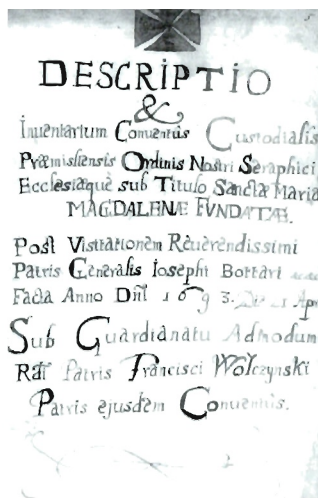 DESCRIPTIO
&
Inventarium Conventûs Custodialis
Præmisliensis Ordinis Nostri Seraphici
Ecclesiæque sub Titulo Sanctæ Mariæ
MAGDALENÆ FVNDATÆ.
Post Visitationem Reverendissimi
Patris Generalis Iosephi Bottari
Facta Anno Dñi 1693. Die 1 Apr
Sub Guardianatu Admodum
Rñdi Patris Francisci Wolczynski
Patris ejusdem Conventûs.